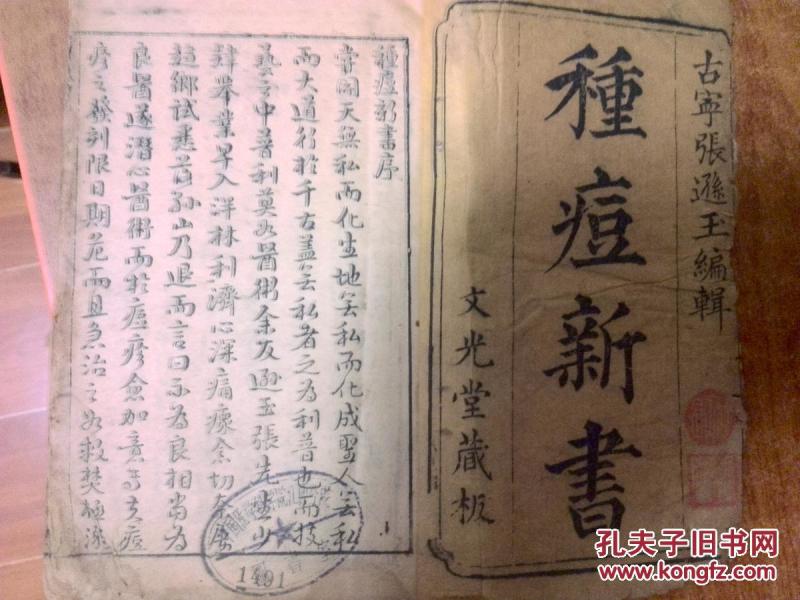 古寧張遜玉編輯
種痘新書
文光堂藏板
種痘新書序
嘗聞天無私而化生地無私而化成聖人無私
而大道行於千古蓋無私者之為利普也而技
藝之中普利莫如醫術余友遜玉張先生少
肄舉業早入泮林利濟心深痛瘝念切
鄉試悉落孫山乃退而言曰不為良相當為
良醫遂潛心醫術而於痘疹愈加意焉夫痘
疹之發刻限日期危而且急治之如救焚拯溺
1491
孔夫子旧书网
www.kongfz.com